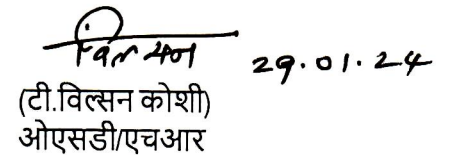 विल्सन 29.01.24
(टी.विल्सन कोशी)
ओएसडी/एचआर